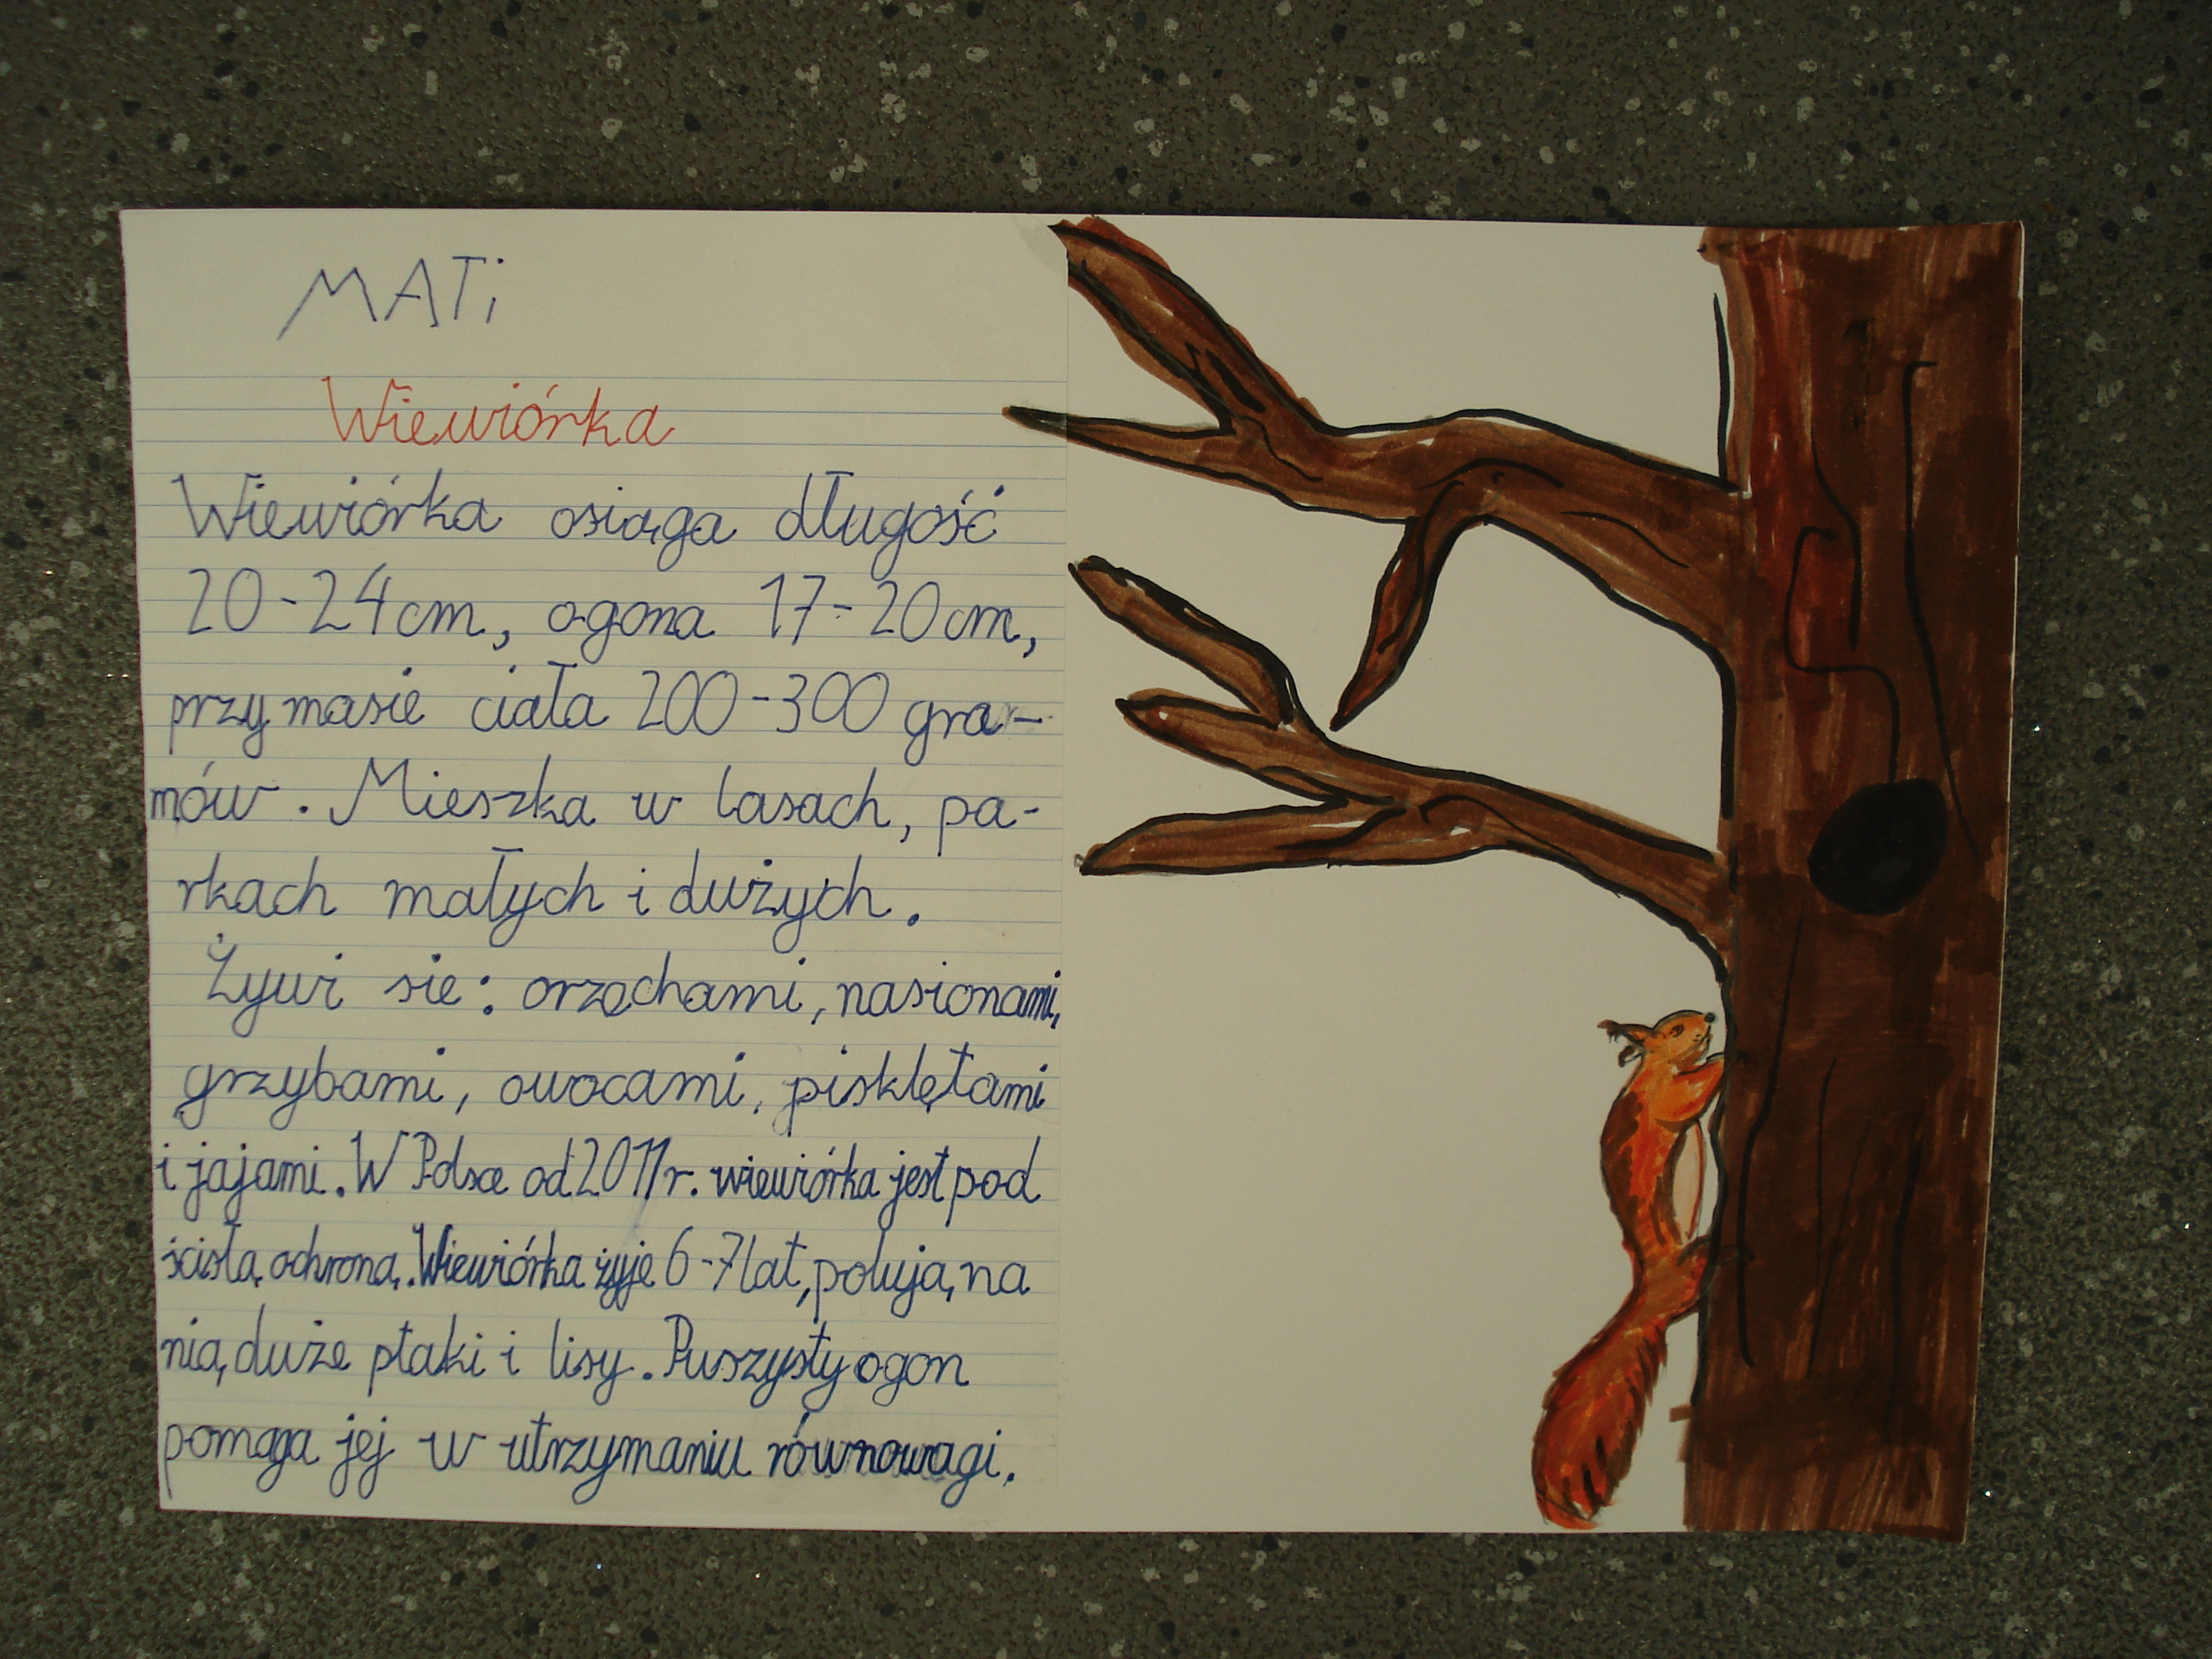 MATi
Wiewiórka
Wiewiórka osiąga długość
20-24cm, ogona 17-20cm,
przy masie ciała 200-300 gra-
mów. Mieszka w lasach, pa-
rkach małych i dużych.
Żywi sie: orzechami, nasionami,
grzybami, owocami, pisklętami
i jajami. W Polsce od 2011r. wiewiórka jest pod
ścisłą ochroną. Wiewiórka żyje 6-7lat, polują na
nią duże ptaki i lisy. Puszysty ogon
pomaga jej w utrzymaniu równowagi.